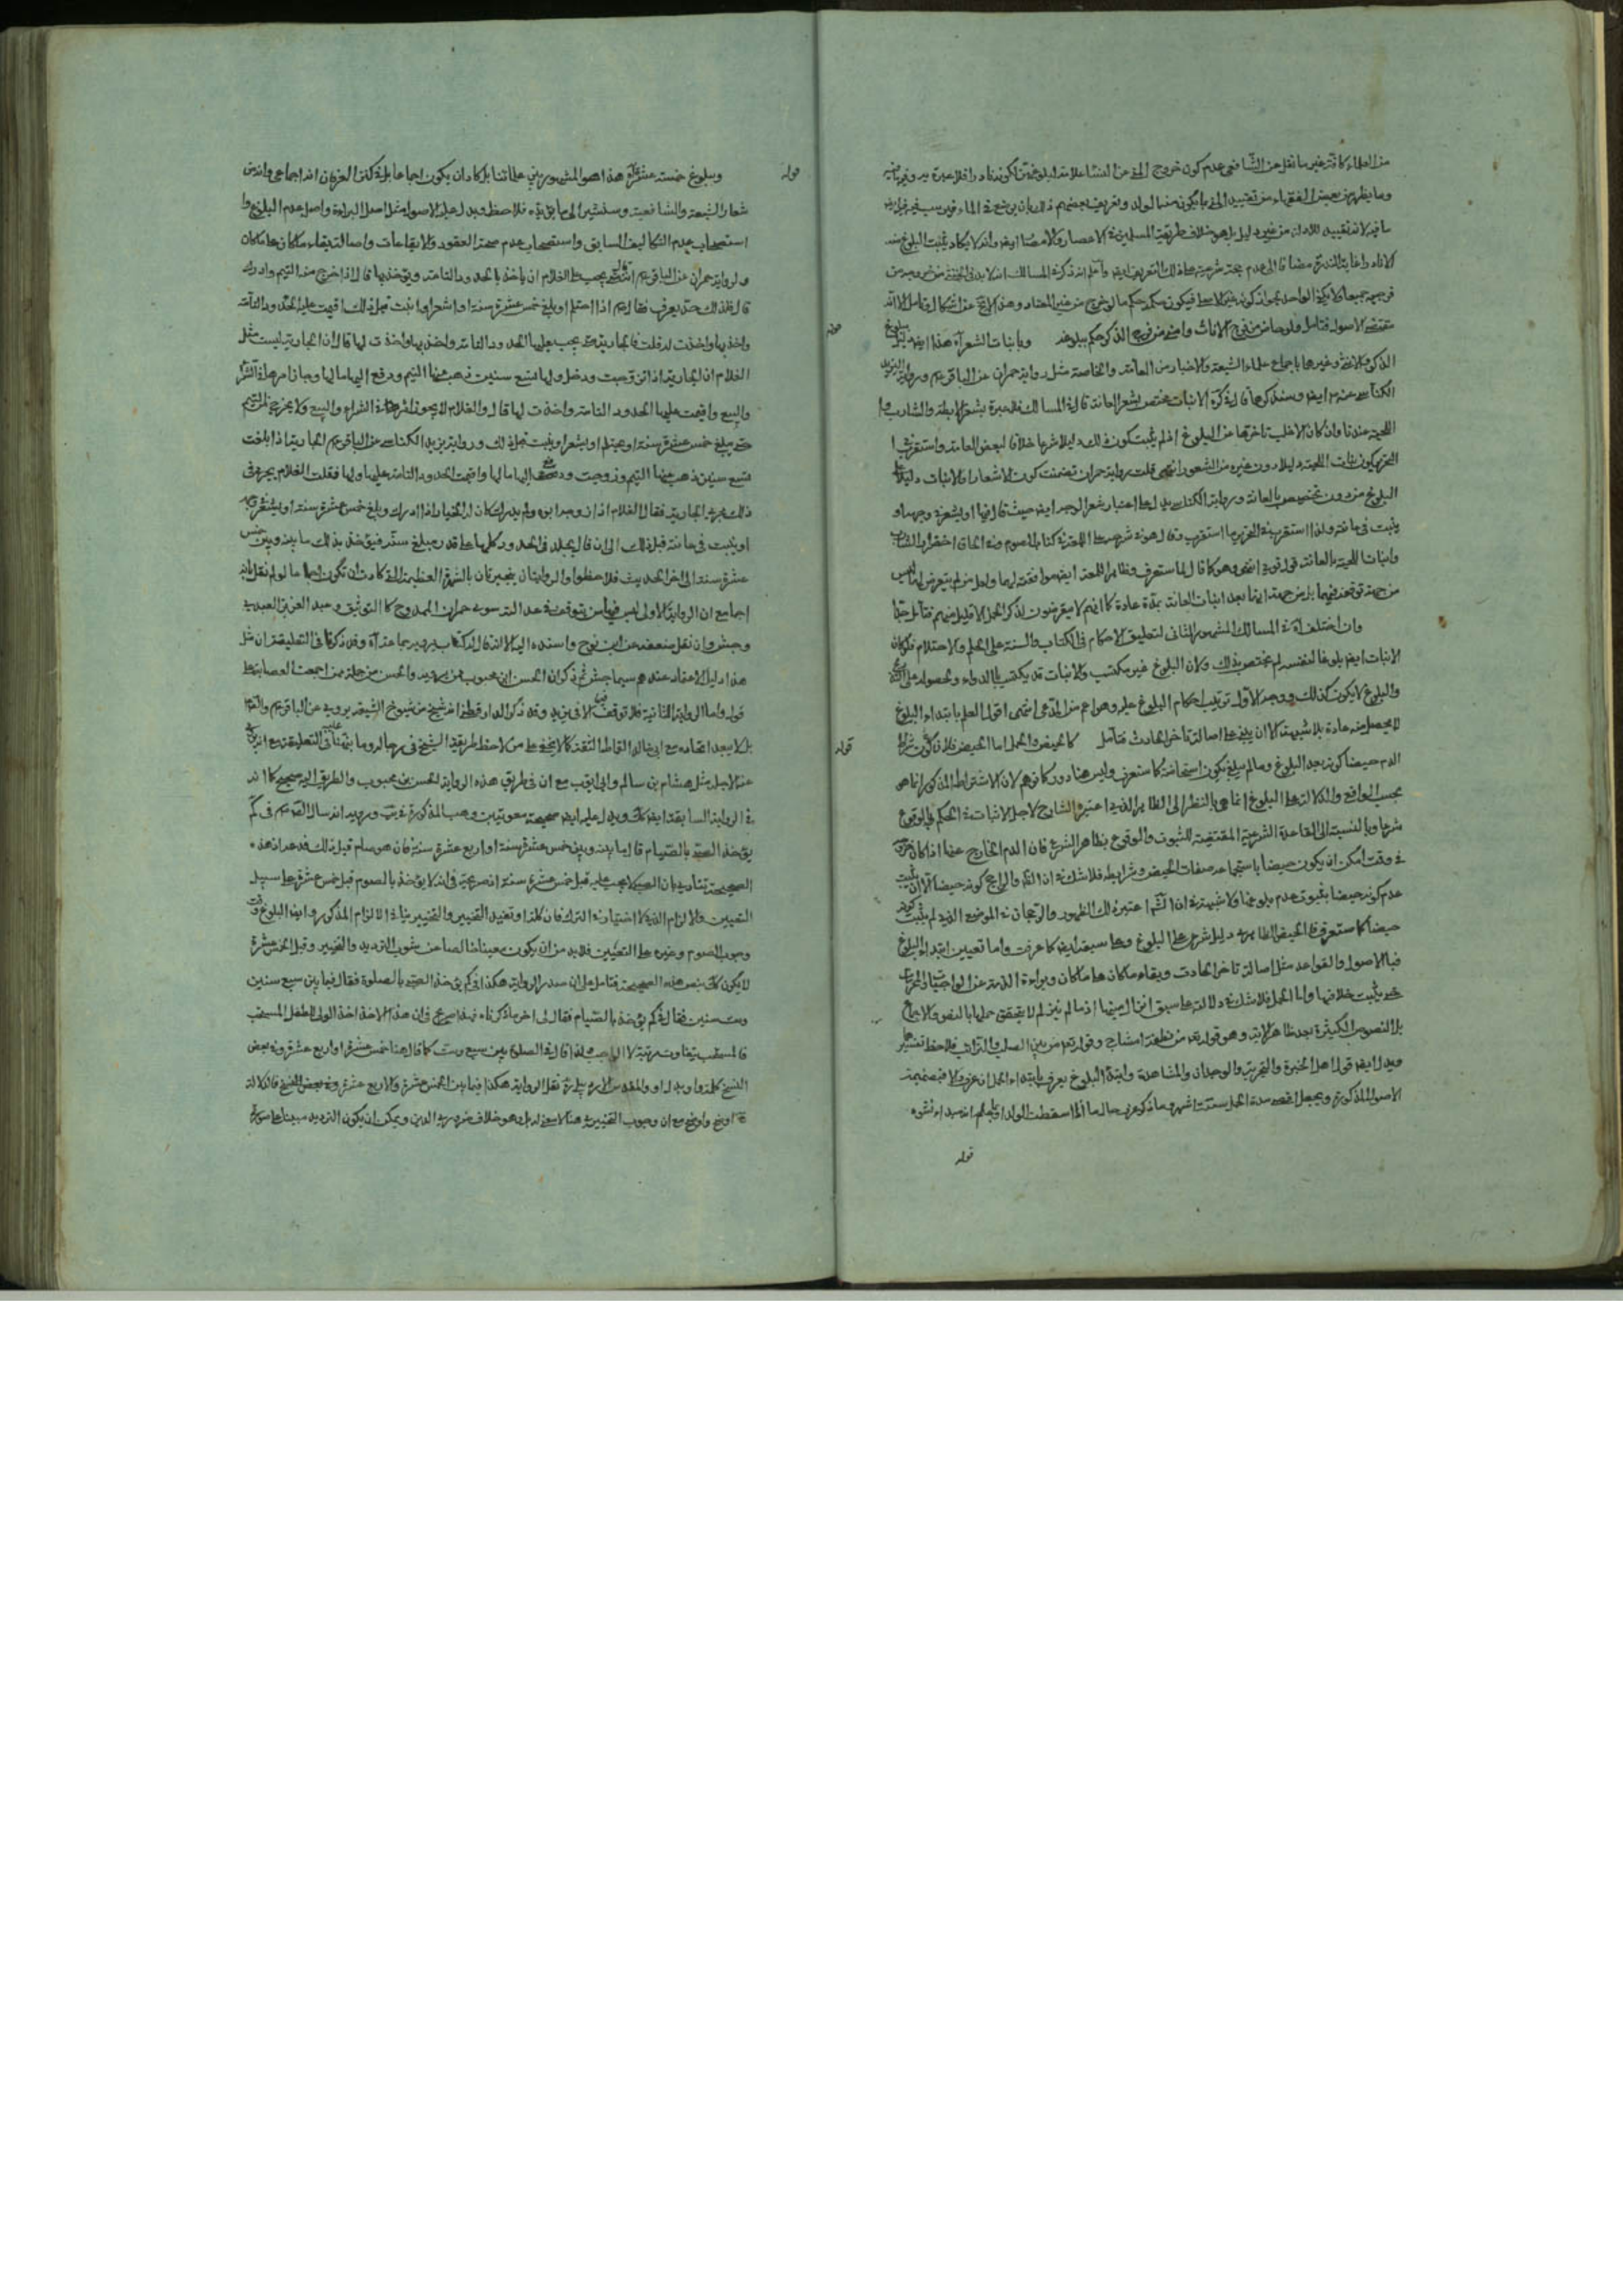 من العلماء كافة غير ما نقل عن الشافعي عدم كون خروج المني من النساء علامة لبلوغهن لكونه نادرا فلا عبرة به وفيه ما فيه
وما يظهر من بعض الفقهاء من تقييد المني بما يكون منه الولد وتعريف بعضهم ذلك بان يوضع في الماء
ما فيه لانه تقييد للادلة من غير دليل بل هو خلاف طريقة المسلمين في الاعصار والامصار ايضا وانه لا يكاد يثبت البلوغ منه
الا نادرا غاية الندرة مضافا الى عدم حجة شرعية على ذلك التعريف ايضا واعلم انه ذكر في المسالك انه لا بد في الخنثى من خروجه من
فرجيه جميعا ولا يكفي الواحد لجواز كونه غير الاصلي فيكون حكمه حكم ما لو خرج من غير المعتاد وهذا لا يخ عن اشكال وتامل الا انه
مقتضى الاصول فتامل ولو حاض من فرج الاناث وامنى من فرج الذكر حكم ببلوغه وبانبات الشعر آه هذا ايضا بلوغ
الذكر والانثى وغيرها باجماع علماء الشيعة والاخبار من العامة والخاصة مثل رواية حمران عن الباقر عم ورواية يزيد
الكناسي عنه عم ايضا وسنذكرهما قال في كره الانبات مختص بشعر العانة قال في المسالك فلا عبرة بشعر الابط والشارب و
اللحية عندنا وان كان الاغلب تاخرها عن البلوغ اذ لم يثبت كون ذلك دليلا شرعا خلافا لبعض العامة واستقرب في
التحرير كون نبات اللحية دليلا دون غيره من الشعور انتهى قلت رواية حمران تضمنت كون الاشعار والانبات دليلا على
البلوغ من دون تخصيص بالعانة ورواية الكناسي يدل على اعتبار شعر الوجه ايضا حيث قال فيها او يشعر في وجهه او
ينبت في عانته ولذا استقرب في التحرير ما استقرب وقال في شرحه على اللمعة في كتاب الصوم وفي الحاق اخضرار الشارب
وانبات اللحية بالعانة قول قوي انتهى وهو كما قال لما ستعرف وظاهر اللمعة ايضا موافقته لهما ولعل من لم يتعرض لهما ليس
من جهة توقفه فيهما بل من جهة انهما بعد انبات العانة بمدة عادة كما انهم لا يتعرضون لذكر الحمل الا قليل منهم فتامل جدا
وان اختلف آه في المسالك المشهور الثاني لتعليق الاحكام في الكتاب والسنة على الحلم والاحتلام فلو كان
الانبات ايضا بلوغا لنفسه لم يختص بذلك ولان البلوغ غير مكتسب والانبات قد يكتسب بالدواء ولحصوله على التدريج
والبلوغ لا يكون كذلك ووجه الاول ترتيب احكام البلوغ عليه وهو اعم من المدعى انتهى اقول العلم بابتداء البلوغ
لا يحصل منه عادة بلا شبهة الا ان يبنى على اصالة تاخر الحادث فتامل كالحيض والحمل اما الحيض فلان كون
الدم حيضا كونه بعد البلوغ وما لم يبلغ يكون استحاضة كما ستعرف وليس هنا دور كما توهم لان الاشتراط المذكور انما هو
بحسب الواقع والدلالة على البلوغ انما هي بالنظر الى الظاهر الذي اعتبره الشارع لاجل الاثبات في الحكم بالوقوع
شرعا وبالنسبة الى القاعدة الشرعية المقتضية للثبوت والوقوع بظاهر الشرع فان الدم الخارج عنها اذا كان
في وقت امكن ان يكون حيضا باستجماعه صفات الحيض وشرايطه فلا شك في ان الظاهر والراجح كونه حيضا الا ان يثبت
عدم كونه حيضا بثبوت عدم بلوغها ولا شبهة في ان الشرع اعتبر ذلك الظهور والرجحان في الموضع الذي لم يثبت كونه
حيضا كما ستعرف فالحيض الظاهري دليل شرعي على البلوغ وعلى سبقه ايضا كما عرفت واما تعيين ابتداء البلوغ
فبالاصول والقواعد مثل اصالة تاخر الحادث وبقاء ما كان على ما كان وبراءة الذمة عن الواجبات والمحرمات
حتى يثبت خلافها واما الحمل فلا شك في دلالته على سبق انزال منيها اذ ما لم ينزلا لم يتحقق حملها بالنص والاجماع
بل النصوص الكثيرة بعد ظاهر الاية وهو قوله تعم من نطفة امشاج وقوله تعم من بين الصلب والترائب فلاحظ تفسيرهما
ويدل ايضا قول اهل الخبرة والتجربة والوجدان والمشاهدة وابتداء البلوغ يعرف بابتداء الحمل ان عرف والا فبضميمة
الاصول المذكورة ويجعل اقصى مدة الحمل ستة اشهر وما ذكر على حالها اذا اسقطت الولد او لم يعلم انه مبداء نشوه
قوله
قوله وببلوغ خمسة عشر آه هذا هو المشهور بين علمائنا بل كاد ان يكون اجماعا بل في كنز العرفان انه اجماعي وانه من
شعار الشيعة والشافعية وسنشير الى ما يؤيده فلاحظ ويدل عليه الاصول مثل اصل البراءة واصل عدم البلوغ و
استصحاب عدم التكاليف السابق واستصحاب عدم صحة العقود والايقاعات واصالة بقاء ما كان على ما كان
ولرواية حمران عن الباقر عم انه سئله متى يجب على الغلام ان ياخذ بالحدود التامة ويؤخذ بها قال اذا خرج عنه اليتم وادرك
قال فلذلك حد يعرف فقال عم اذا احتلم او بلغ خمس عشرة سنة او اشعر او انبت قبل ذلك اقيمت عليه الحدود التامة
واخذ بها واخذت له قلت فالجارية متى يجب عليها الحدود التامة واخذ بها واخذت لها قال ان الجارية ليست مثل
الغلام ان الجارية اذا تزوجت ودخل ولها تسع سنين ذهب عنها اليتم ودفع اليها مالها وجاز امرها في الشراء
والبيع واقيمت عليها الحدود التامة واخذت لها قال والغلام لا يجوز امره في الشراء والبيع ولا يخرج عن اليتم
حتى يبلغ خمس عشرة سنة او يحتلم او يشعر او ينبت قبل ذلك ورواية يزيد الكناسي عن الباقر عم الجارية اذا بلغت
تسع سنين ذهب عنها اليتم وزوجت ودفع اليها مالها واقيمت الحدود التامة عليها ولها فقلت الغلام يجري في
ذلك مجرى الجارية فقال الغلام اذا زوجه ابوه ولم يدرك كان له الخيار اذا ادرك وبلغ خمس عشرة سنة او يشعر في وجهه
او ينبت في عانته قبل ذلك الى ان قال يجلد في الحدود كلها على قدر مبلغ سنه فيؤخذ بذلك ما بينه وبين خمس
عشرة سنة الى اخر الحديث فلاحظوا والروايتان ينجبرتان بالشهرة العظيمة التي كادت ان تكون اجماعا لو لم نقل بانه
اجماع مع ان الرواية الاولى ليس فيها من يتوقف في عدالته سوى حمران الممدوح كالتوثيق وعبد العزيز العبدي
وحسن وان نقل ضعفه عن ابن نوح واستنده اليه الا انه قال له كتاب يرويه جماعة آه وقد ذكرنا في التعليقة ان مثل
هذا دليل الاعتماد عندهم سيما جش ثم ذكر ان الحسن ابن محبوب ممن يرويه والحسن من جملة من اجمعت العصابة على
قوله واما الرواية الثانية فلا توقف فيها الا في يزيد وقد ذكر الدارقطني انه شيخ من شيوخ الشيعة يروي عن الباقر عم والصادق
بل لا يبعد اتحاده مع ابي خالد القماط الثقة كما لا يخفى على من لاحظ طريقة الشيخ في رجاله وما بيناه في التعليقة مع انه يروي
عنه الاجلة مثل هشام بن سالم وابي ايوب مع ان في طريق هذه الرواية الحسن بن محبوب والطريق اليه صحيح كما انه
في الرواية السابقة ايضا كك ويدل عليه ايضا صحيحة معوية بن وهب المذكورة في يب ويه انه سال الصادق عم في كم
يؤخذ الصبي بالصيام قال ما بينه وبين خمس عشرة سنة او اربع عشرة سنة فان هو صام قبل ذلك فدعه اذ هذه
الصحيحة تنادي بان الصبي لا يجب عليه قبل خمس عشرة سنة انه صريحة في انه لا يؤخذ بالصوم قبل خمس عشرة على سبيل
التعيين والالزام الذي لا اختيار في الترك فان كلمة او تفيد التخيير والتخيير ينافي الالزام المذكور وايضا البلوغ وقت
وجوب الصوم وغيره على التعيين فلا بد من ان يكون معينا خالصا عن شوب الترديد والتخيير وقبل الخمس عشرة
لا يكون كك بنص هذه الصحيحة فتامل على ان صدر الرواية هكذا في كم يؤخذ الصبي بالصلوة فقال فيما بين سبع سنين
وست سنين فقال في كم يؤخذ بالصيام فقال الى اخر ما ذكرناه فهذا صريح في ان هذا الاخذ اخذ الولي للطفل المستحب
فالمستحب يتفاوت مرتبة لا الواجب ولذا قال في الصلوة بين سبع وست كما قال هنا خمس عشرة او اربع عشرة وفي بعض
النسخ كلمة واو بدل او والمقدس الاردبيلي ره نقل الرواية هكذا فيما بين الخمس عشرة والاربع عشرة وفي بعض النسخ فالدلالة
ح اوضح واوضح مع ان وجوب التخييري هنا لا معنى له بل هو خلاف ضروري الدين ويمكن ان يكون الترديد مبنيا على صورة